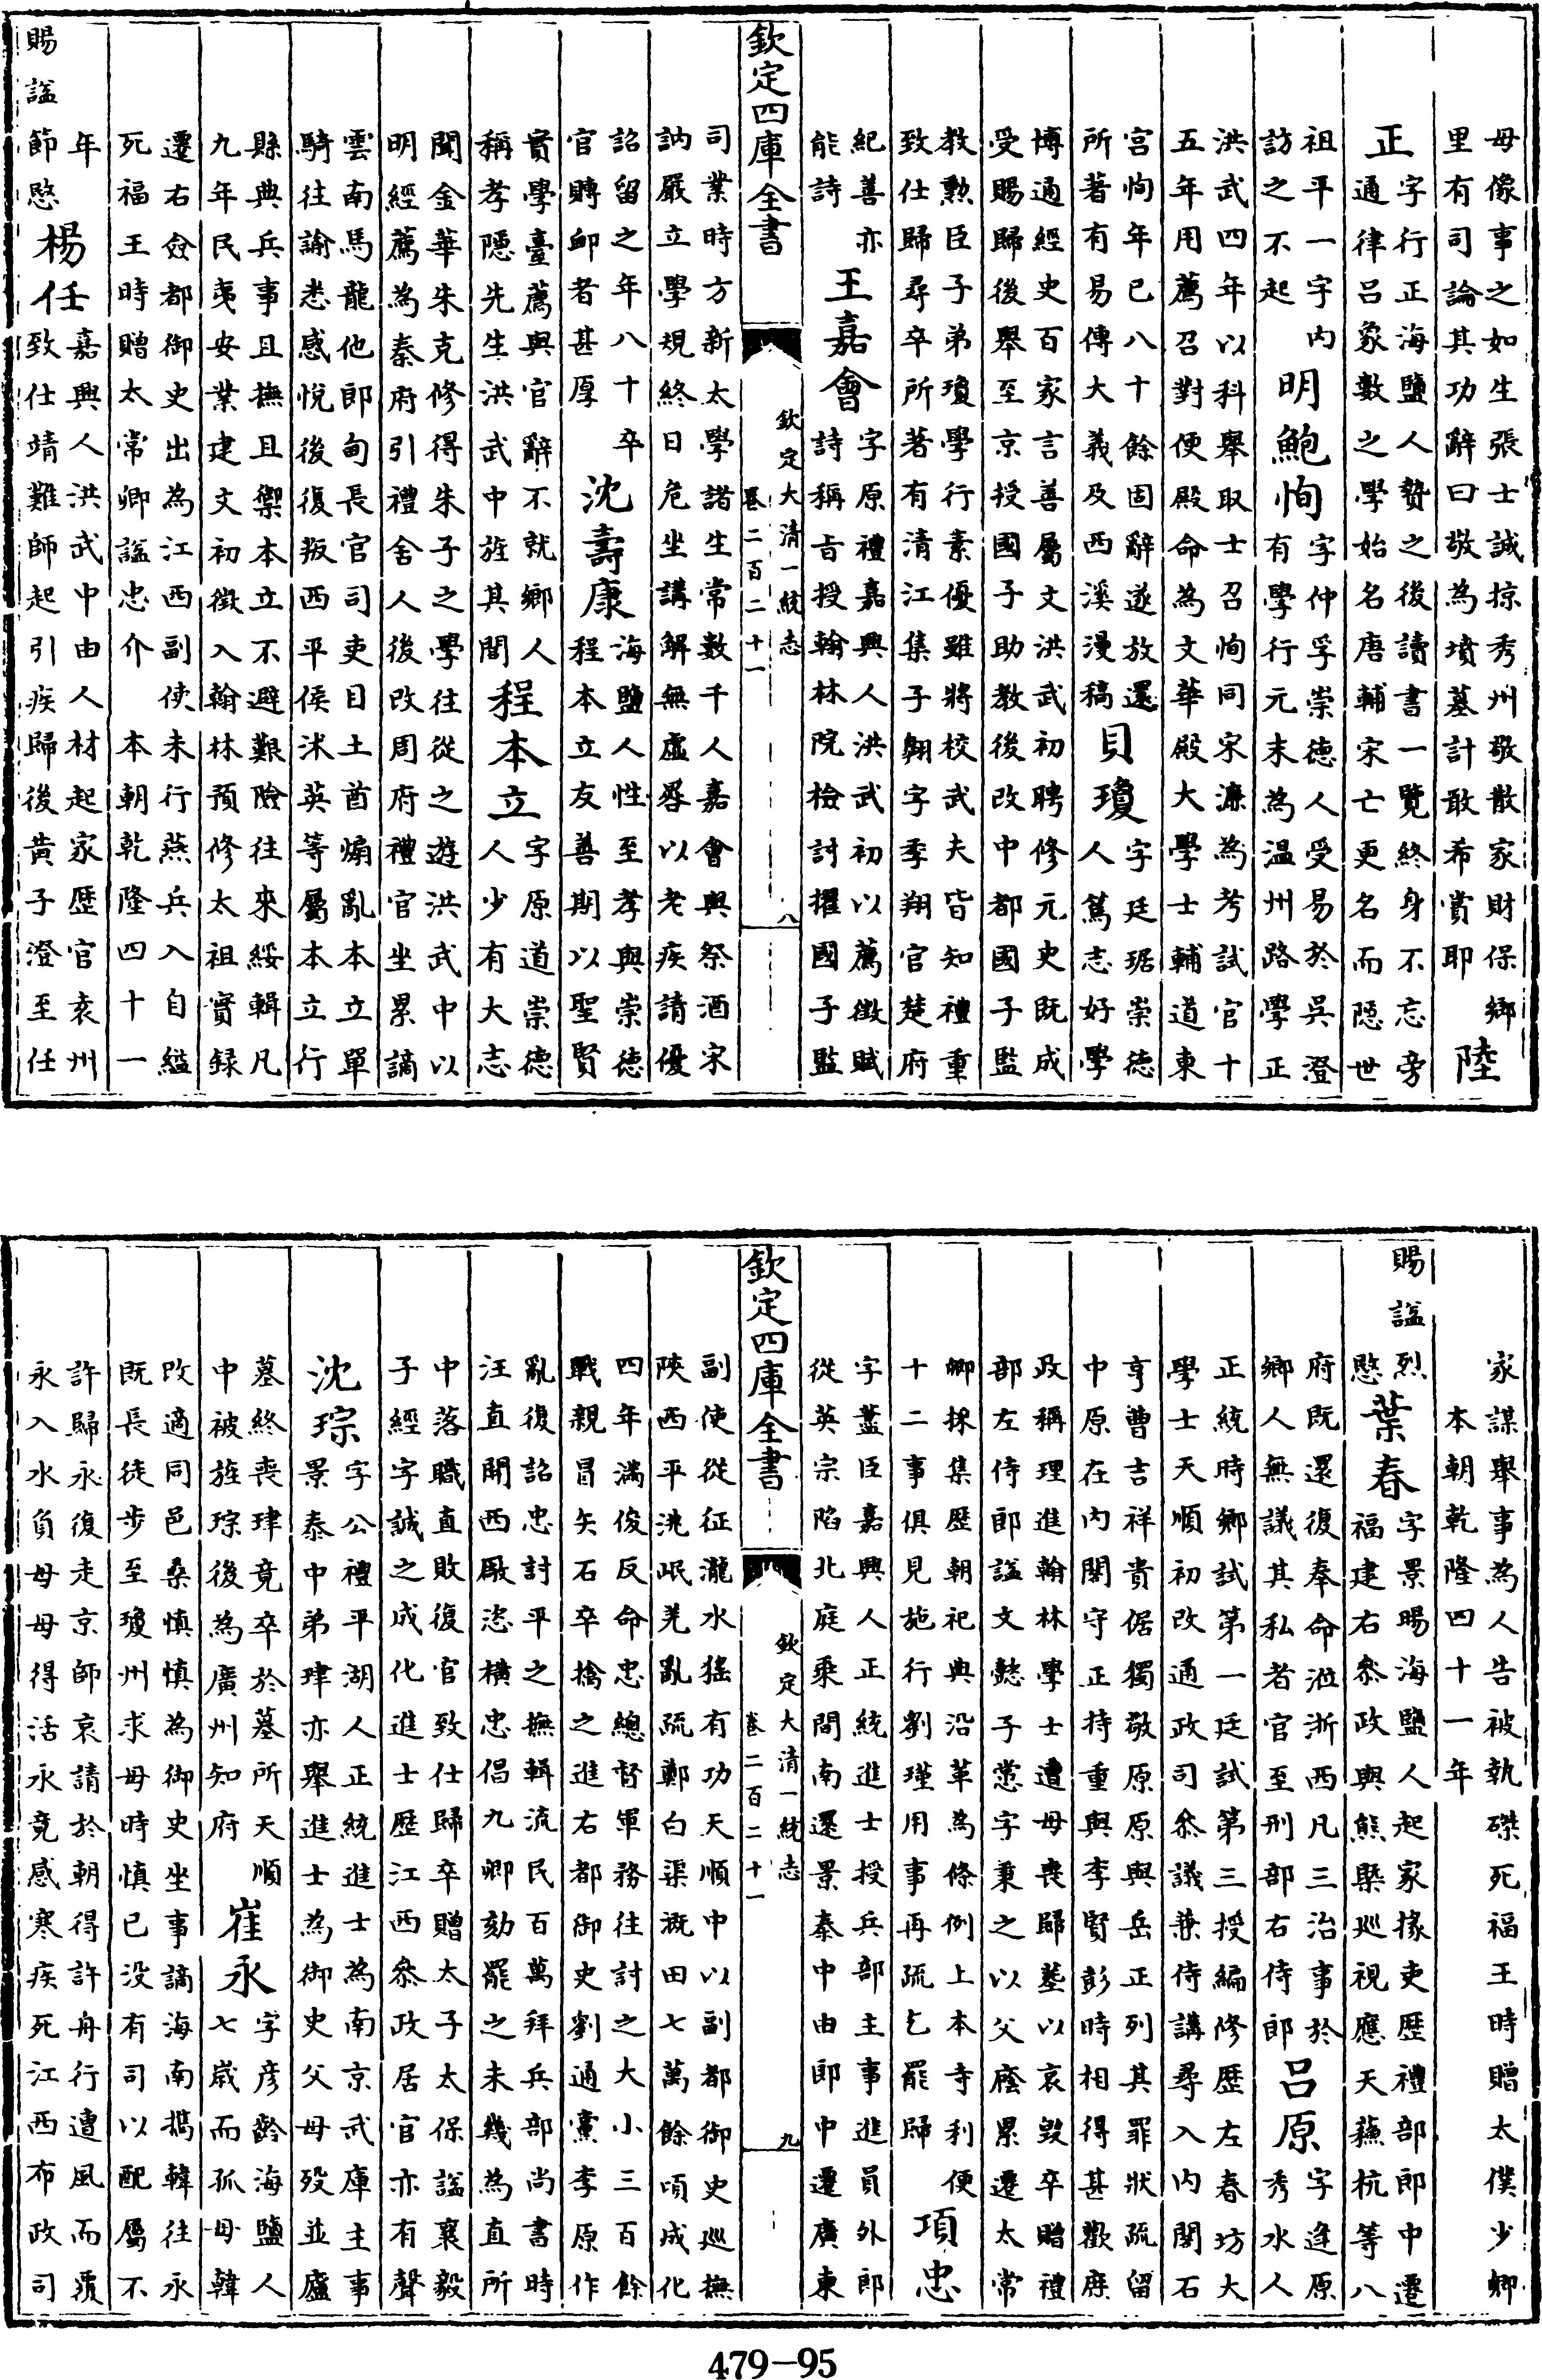 母像事之如生張士誠掠秀州敬散家財保鄉
里有司論其功辭曰敬為墳墓計敢希賞耶
陸
正
字行正海鹽人贄之後讀書一覽終身不忘旁
通律呂象數之學始名唐輔宋亡更名而隠世
祖平一字内
訪之不起
明鮑恂
字仲孚崇德人受易於吳澄
有學行元末為温州路學正
洪武四年以科舉取士召恂同宋濓為考試官十
五年用薦召對便殿命為文華殿大學士輔道東
宫恂年已八十餘固辭遂放還
所著有易傳大義及西溪漫稿
貝瓊
字廷琚崇德
人篤志好學
博通經史百家言善屬文洪武初聘修元史既成
受賜歸後舉至京授國子助教後改中都國子監
教勲臣子弟瓊學行素優雖將校武夫皆知禮重
致仕歸尋卒所著有清江集子翺字季翔官楚府
紀善亦
能詩
王嘉會
字原禮嘉興人洪武初以薦徵賦
詩稱旨授翰林院檢討擢國子監
欽定四庫全書
欽定大清一統志
卷二百二十一
八
司業時方新太學諸生常數千人嘉會與祭酒宋
訥嚴立學規終日危坐講解無虛晷以老疾請優
詔留之年八十卒
官賻卹者甚厚
沈壽康
海鹽人性至孝與崇德
程本立友善期以聖賢
實學臺薦與官辭不就鄉人
稱孝隠先生洪武中旌其閭
程本立
字原道崇德
人少有大志
聞金華朱克修得朱子之學往從之遊洪武中以
明經薦為秦府引禮舍人後改周府禮官坐累謫
雲南馬龍他郎甸長官司吏目土酋煽亂本立單
騎往諭悉感悅後復叛西平侯沐英等屬本立行
縣典兵事且撫且禦本立不避艱險往來綏輯凡
九年民夷安業建文初徵入翰林預修太祖實録
遷右僉都御史出為江西副使未行燕兵入自縊
死福王時贈太常卿諡忠介 本朝乾隆四十一
年
賜諡節愍
楊任
嘉興人洪武中由人材起家歷官袁州
致仕靖難師起引疾歸後黄子澄至任
家謀舉事為人告被執磔死福王時贈太僕少卿
本朝乾隆四十一年
賜諡烈
愍
葉春
字景暘海鹽人起家掾吏歷禮部郎中遷
福建右叅政與熊槩巡視應天蘇杭等八
府既還復奉命涖浙西凡三治事於
鄉人無議其私者官至刑部右侍郎
呂原
字逢原
秀水人
正統時鄉試第一廷試第三授編修歷左春坊大
學士天順初改通政司叅議兼侍講尋入内閣石
亨曹吉祥貴倨獨敬原原與岳正列其罪狀疏留
中原在内閣守正持重與李賢彭時相得甚歡庶
政稱理進翰林學士遭母喪歸塟以哀毁卒贈禮
部左侍郎諡文懿子㦂字秉之以父廕累遷太常
卿採集歷朝祀典沿革為條例上本寺利便
十二事俱見施行劉瑾用事再疏乞罷歸
項忠
字藎臣嘉興人正統進士授兵部主事進員外郎
從英宗陷北庭乘間南還景泰中由郎中遷廣東
欽定四庫全書
欽定大清一統志
卷二百二十一
九
副使從征瀧水猺有功天順中以副都御史巡撫
陜西平洮岷羌亂疏鄭白渠溉田七萬餘頃成化
四年滿俊反命忠總督軍務往討之大小三百餘
戰親冒矢石卒擒之進右都御史劉通黨李原作
亂復詔忠討平之撫輯流民百萬拜兵部尚書時
汪直開西厰恣橫忠倡九卿劾罷之未幾為直所
中落職直敗復官致仕歸卒贈太子太保諡襄毅
子經字誠之成化進士歷江西叅政居官亦有聲
沈琮
字公禮平湖人正統進士為南京武庫主事
景泰中弟珒亦舉進士為御史父母歿並廬
墓終喪珒竟卒於墓所天順
中被旌琮後為廣州知府
崔永
字彦齡海鹽人
七嵗而孤母韓
改適同邑桑慎慎為御史坐事謫海南攜韓往永
既長徒步至瓊州求母時慎已没有司以配屬不
許歸永復走京師哀請於朝得許舟行遭風而覆
永入水負母母得活永竟感寒疾死江西布政司
479-95